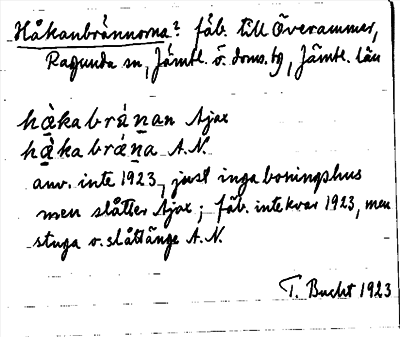 Håkanbrännorna? fäb. till Överammer,
Ragunda sn, Jämtl. ö. doms. tg, Jämtl. län
hạ̀kabránan Ajax
hạ̀kabrána A.N.
anv. inte 1923, just inga boningshus
men slåtter Ajax; fäb. inte kvar 1923, men
stuga o. slåttänge A.N.
T. Bucht 1923